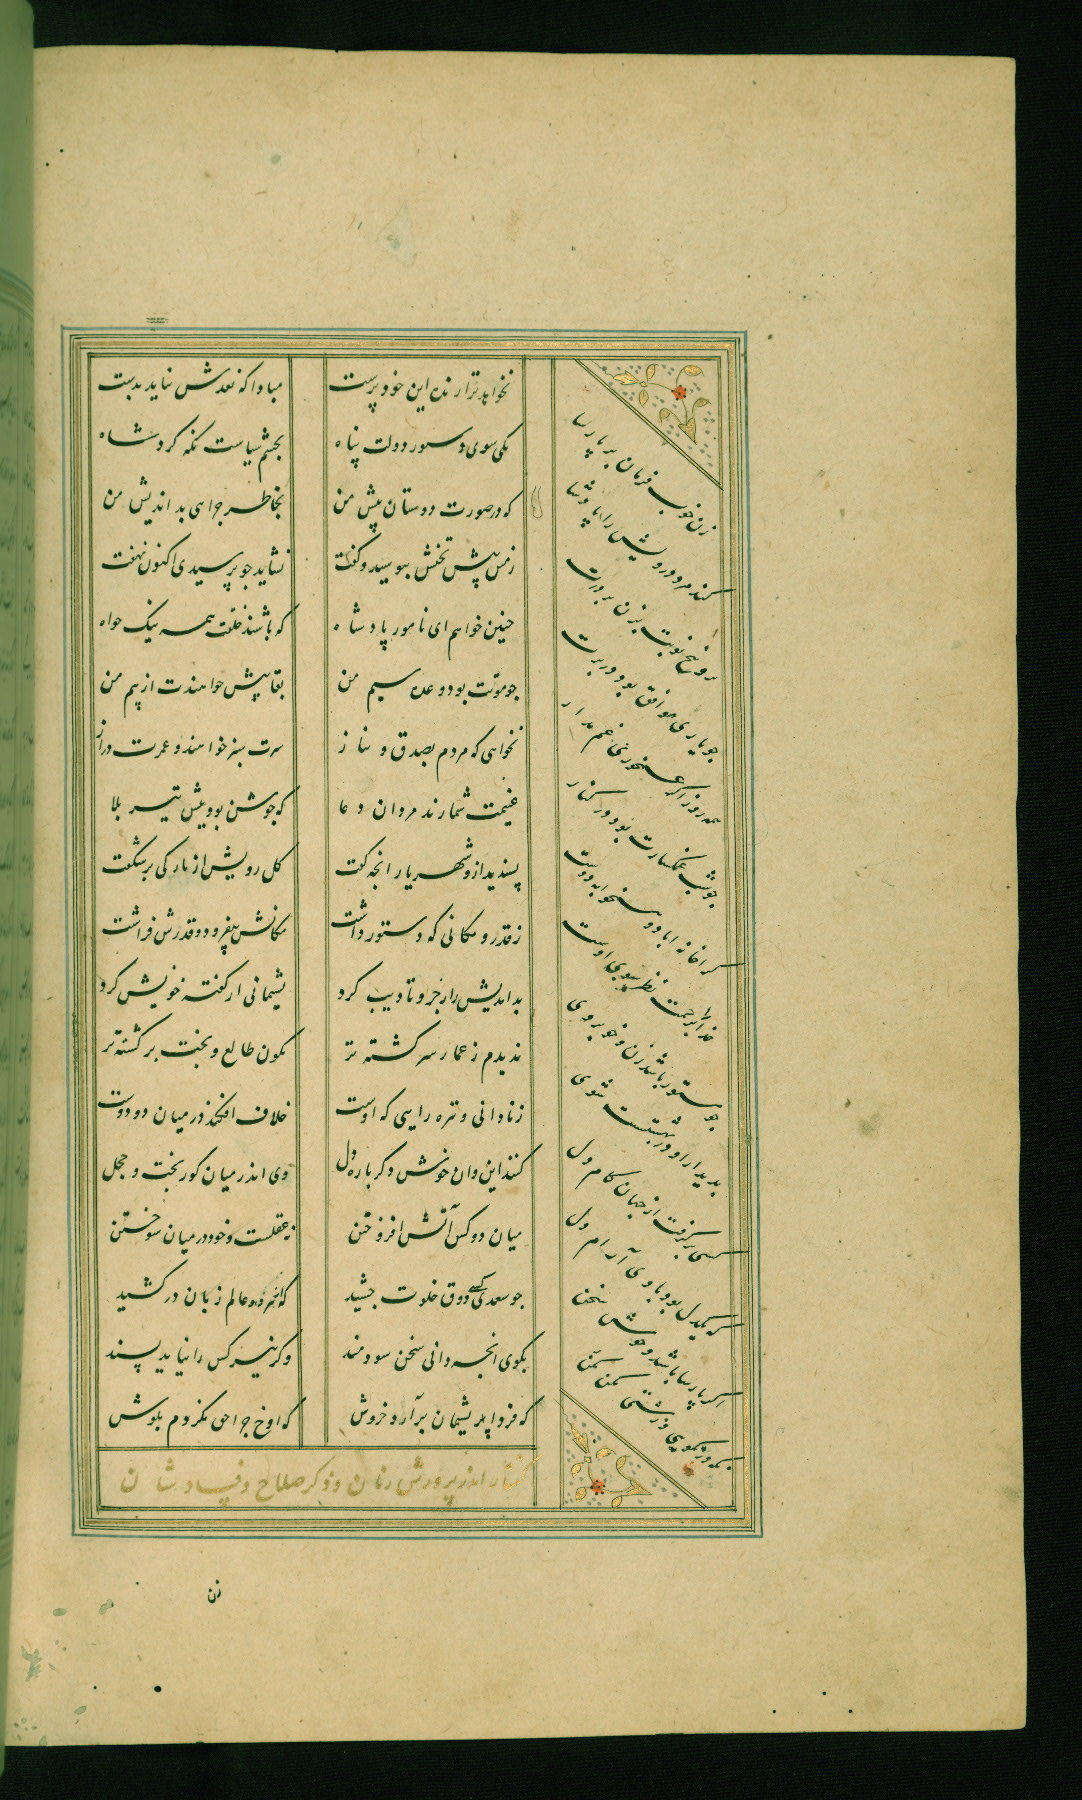 نخواهد ترا زنده این خودپرست
مبادا که نقدش نیاید بدست
یکی سوی دستور دولت پناه
بچشم سیاست نگه کرد شاه
که در صورت دوستان پیش من
بخاطر چرایی بد اندیش من
زمین پیش تختش ببوسید و گفت
نشاید چو پرسیدی اکنون نهفت
چنین خواهم ای نامور پادشاه
که باشند خلقت همه نیک خواه
چو موتت بود وعده سیم من
بقا بیش خواهندت از بیم من
نخواهی که مردم بصدق و نیاز
سرت سبز خواهند و عمرت دراز
غنیمت شمارند مردان دعا
که جوشن بود پیش تیر بلا
پسندید ازو شهریار آنچه گفت
گل رویش از تازگی برشکفت
ز قدر و مکانی که دستور داشت
مکانش بیفزود و قدرش فراشت
بد اندیش را زجر و تادیب کرد
پشیمانی از گفته خویش کرد
ندیدم ز غماز سرگشته تر
نگون طالع و بخت برگشته تر
ز نادانی و تیره رایی که اوست
خلاف افکند در میان دو دوست
کنند این و آن خوش دگرباره دل
وی اندر میان کوربخت و خجل
میان دو کس آتش افروختن
نه عقلست و خود در میان سوختن
چو سعدی کسی ذوق خلوت چشید
که از هر دو عالم زبان درکشید
بگوی آنچه دانی سخن سودمند
وگر هیچ کس را نیاید پسند
که فردا پشیمان برآرد خروش
که آوخ چرا حق نکردم بگوش
گفتار اندر پرورش زنان و ذکر صلاح و فساد شان
زن خوب فرمان بر پارسا
کند مرد درویش را پادشا
برو پنج نوبت بزن بر درت
چو یاری موافق بود در برت
همه روز اگر غم خوری غم مدار
چو شب غمگسارت بود در کنار
کرا خانه آباد و همخوابه دوست
خدا را برحمت نظر سوی اوست
چو مستور باشد زن و خوبروی
بدیدار او در بهشتست شوی
کسی برگرفت از جهان کام دل
که یکدل بود با وی آرام دل
اگر پارسا باشد و خوش سخن
نگه در نکویی و زشتی مکن
زن